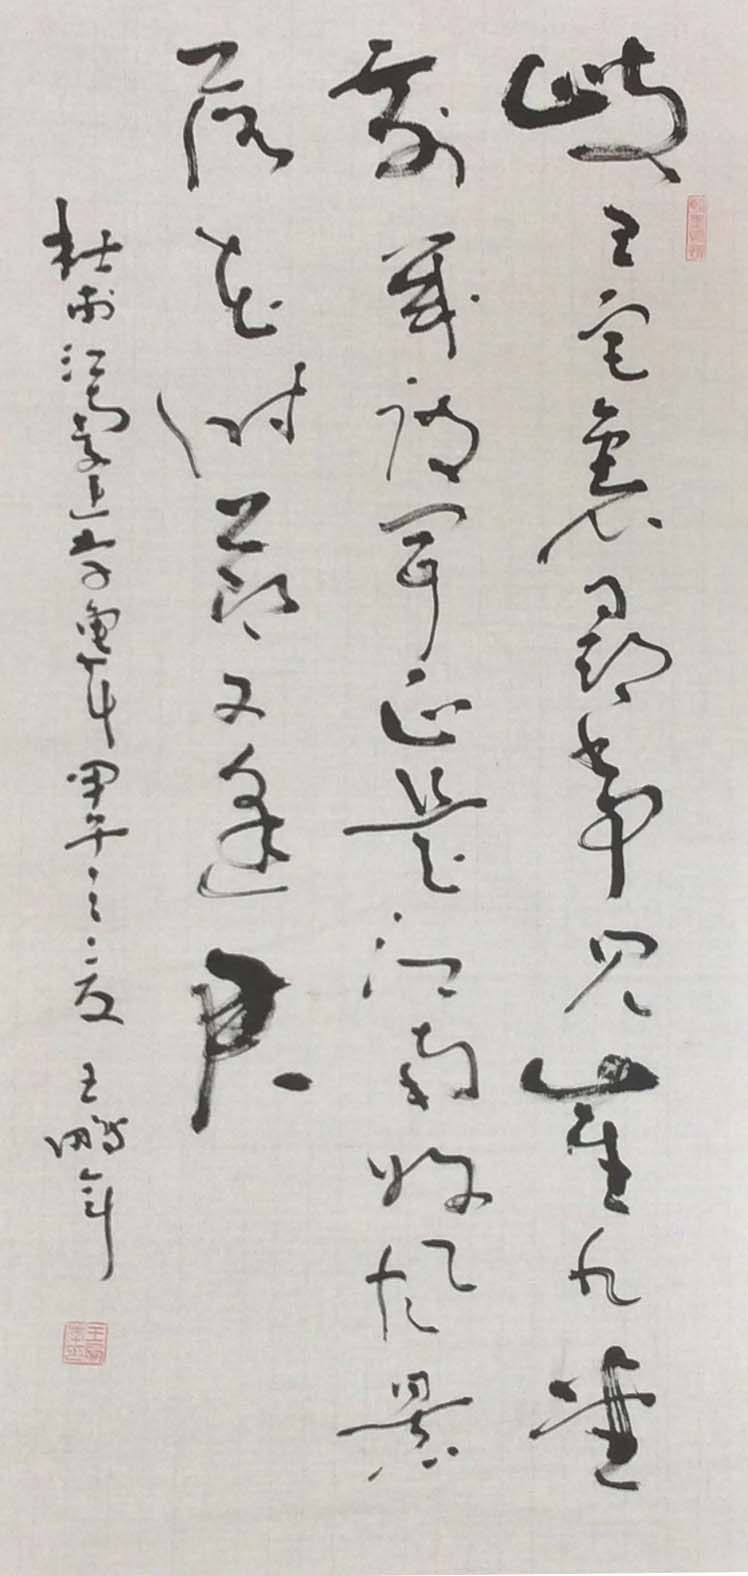 岐王宅裏尋常見崔九堂
前幾度聞正是江南好風景
落花時節又逢君
杜甫江南逢李龜年 甲午之夏 王鵬